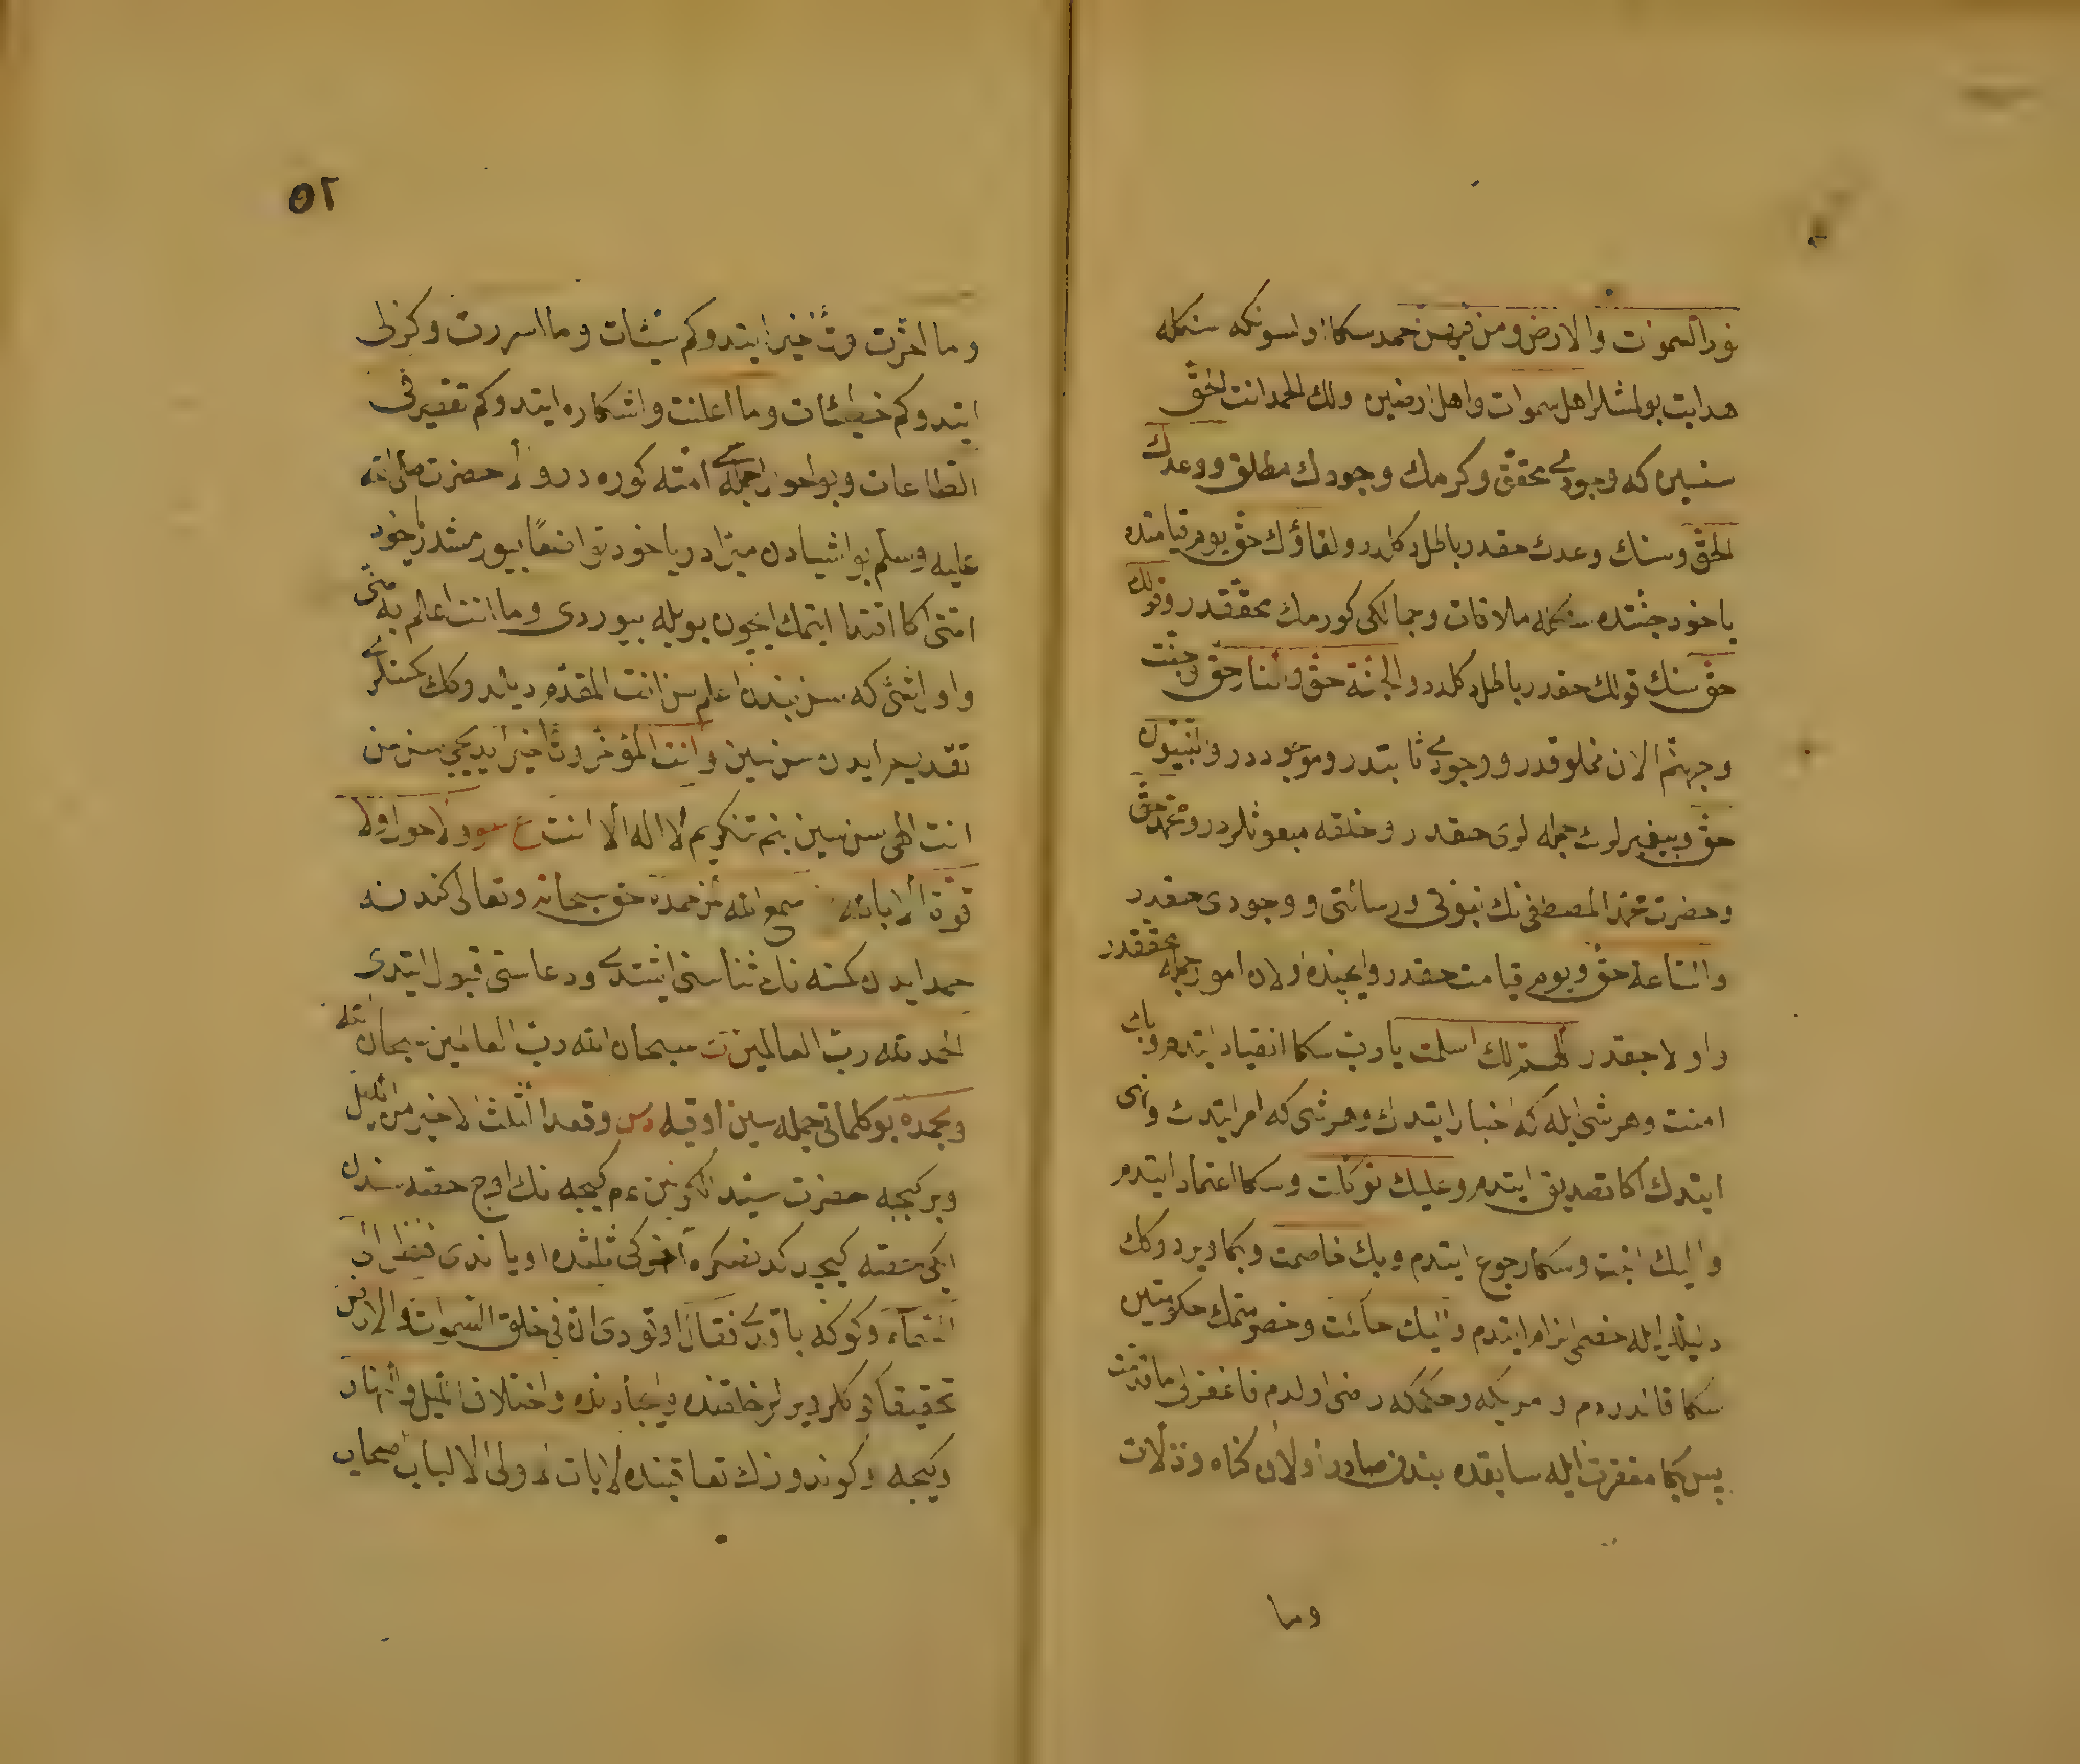 نور السموات والارض ومن فيهن حمد سكا اولسونكه سنكله
هدايت بولمشلر اهل سموات واهل ارضين ولك الحمد انت الحق
سنسين كه وجودى محقق وكرمك وجودك مطلق ووعدك
الحق وسنك وعدك حقدر باطل دكلدر ولقاؤك حق يوم قيامتده
ياخود جنتده سنكله ملاقات وجمالكى كورمك محققدر وقولك
حق سنك قولك حقدر باطل دكلدر والجنة حق والنار حق وجنت
وجهنم الان مخلوقدر ووجودى ثابتدر وموجوددر والنبيون
حق وپيغمبرلرك جمله لرى حقدر وخلقه مبعوثلردر ومحمد حق
وحضرت محمد المصطفى نك نبوتى ورسالتى ووجودى حقدر
والساعة حق ويوم قيامت حقدر وايچنده اولان امور جمله محققدر
واولاجقدر اللهم لك اسلمت يا رب سكا انقياد ايتدم وبك
امنت وهر شى ايله كه اخبار ايتدك وهر شى كه امر ايتدك ونهى
ايتدك اكا تصديق ايتدم وعليك توكلت وسكا اعتماد ايتدم
واليك انبت وسكا رجوع ايتدم وبك خاصمت وبكا ويردوكك
دليللر ايله خصمى الزام ايتدم واليك حاكمت وخصومتمك حكومتين
سكا قالدردم و امريكه وحكمكه رضى اولدم فاغفرلى ما قدمت
پس بكا مغفرت ايله سابقده بندن صادر اولان كناه وزلات
وما
٥٢
وما اخرت وتأخير ايتدوكم سيئات وما اسررت وكزلى
ايتدوكم خطيئات وما اعلنت واشكاره ايتدوكم تقصير فى
الطاعات وبو احوال جمله سى امته كوره در والا حضرت صلى الله
عليه وسلم بو اشيادن مبرادر ياخود تواضعا بيورمشدر ياخود
امتى اكا اقتدا ايتمك ايچون بويله بيوردى وما انت اعلم به منى
واول شئ كه سن بندن اعلم سن انت المقدم ديلدوكك كمسنلرى
تقديم ايدن سن سين وانت المؤخر وتأخير ايديجى سن سن
انت الهى سن سين بنم تنكريم لا اله الا انت ع ولا حول ولا
قوة الا بالله سمع الله لمن حمده حق سبحانه وتعالى كندسنه
حمد ايدن كمسنه نك ثناسنى ايشتدى ودعاسنى قبول ايتدى
الحمد لله رب العالمين ت سبحان الله رب العالمين سبحان الله
وبحمده بو كلماتى جمله سين اوقيه وقعد الثلث الاخير من الليل
وبر كيجه حضرت سيد الكونين ءم كيجه نك اوچ حصه سندن
ايكى حصه كيجدكدنصكره آخركى ثلثده اوياندى فنظر الى
السماء وكوكه باقدى فقال اوقودى ان فى خلق السموات والارض
تحقيقا كوكلر ويرلر خلقنده وايجادنده واختلاف الليل والنهار
وكيجه وكوندوزك تعاقبنده لايات لاولى الالباب اصحاب